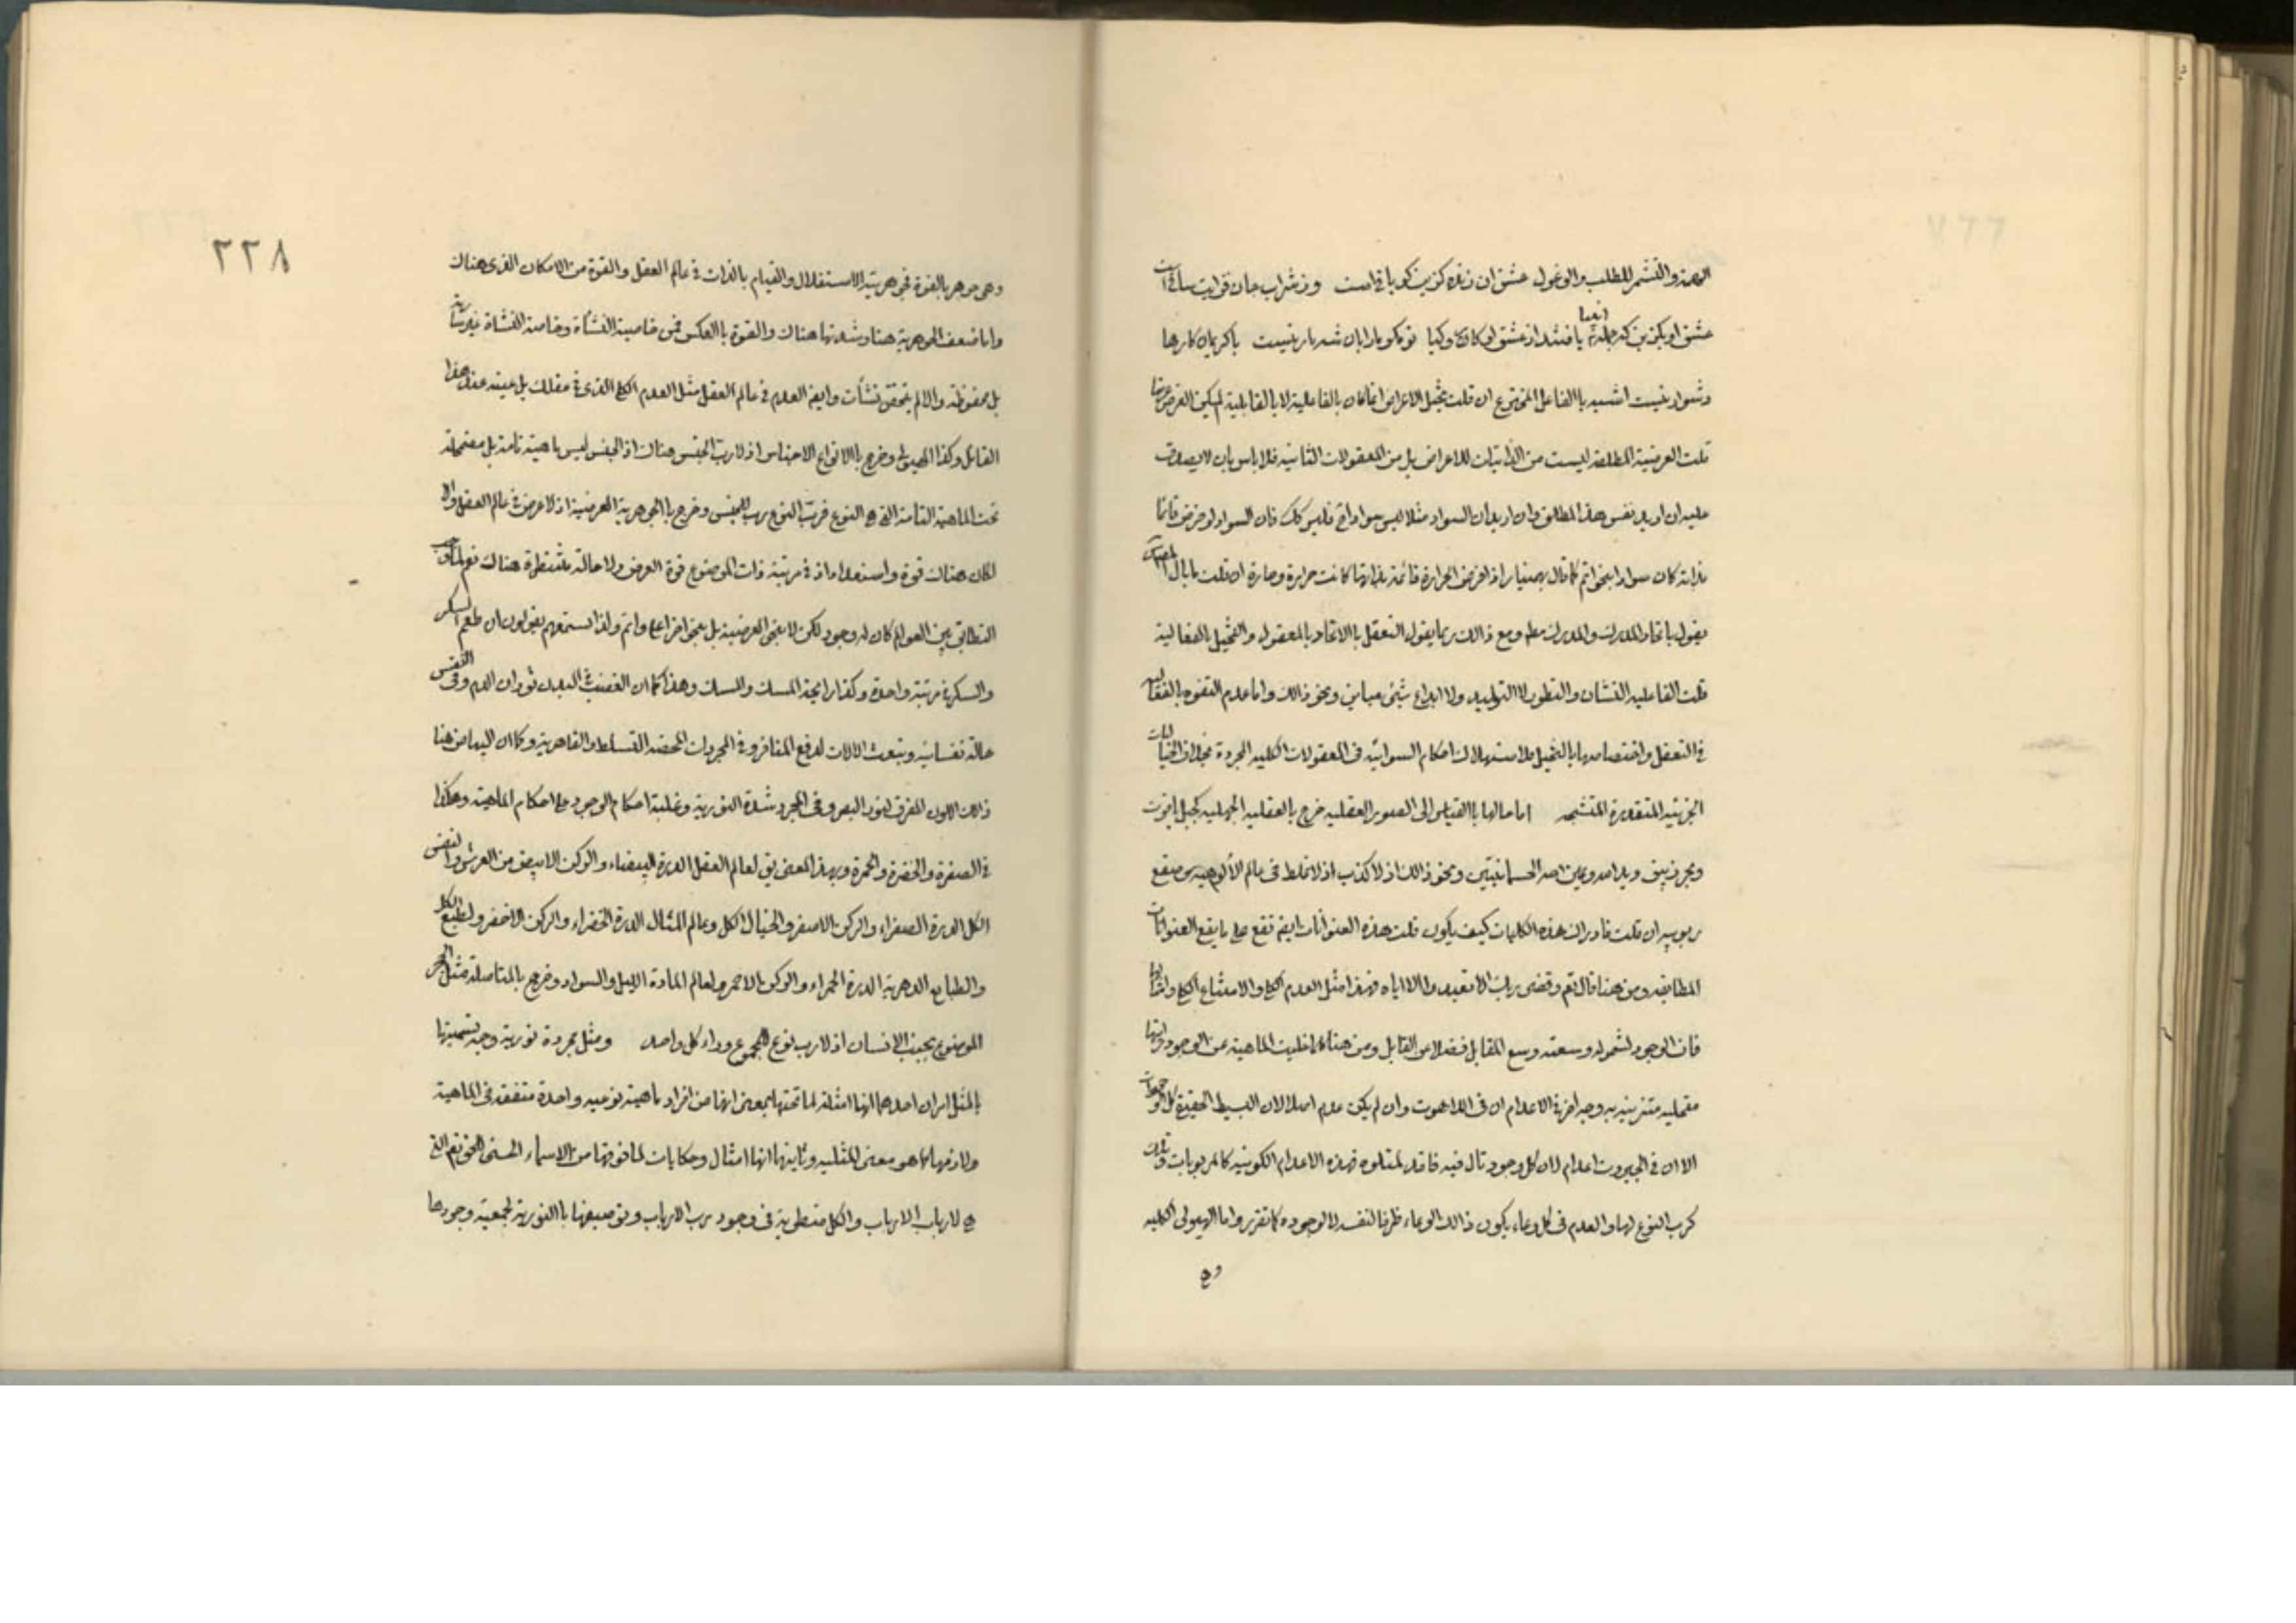 الهمة والتشمر للطلب والوغول عشق ان زنده كزين كو باقيست وز شراب جان فزايت ساقيست
عشق او بكزين كه جمله انبيا يافتند از عشق او كار و كيا تو مكو ما را بان شه بار نيست با كريمان كارها
دشوار نيست اشبه بالفاعل المخترع ان قلت تخيل الاعراض اذا كان بالفاعلية لا بالقابلية لم يكن العرض عرضا
قلت العرضية المطلقة ليست من الذاتيات للاعراض بل من المعقولات الثانية فلا باس بان لا يصدق
عليه ان اريد نفس هذا المطلق وان اريد ان السواد مثلا ليس سوادا فليس كك فان السواد لو فرض قائما
بذاته كان سوادا بنحو اتم كما قال بهمنيار اذا فرض الحرارة قائمة بذاتها كانت حرارة وحارة ان قلت ما بال المصنف
يقول باتحاد المدرك والمدرك مطم ومع ذالك ربما يقول التعقل بالاتحاد بالمعقول والتخيل بالفعالية
قلت الفاعليه النشان والتطور لا التوليد ولا ابداع شيئ مباين ونحو ذالك واما عدم التفوه بالفعاليه
في التعقل واختصاصها بالتخيل فلاستهلاك احكام السوائيه فى المعقولات الكليه المجردة بخلاف الخياليات
الجزئيه المتقدرة المتشبحه اما مالها بالقياس الى الصور العقليه خرج بالعقليه الجهليه كجبل ياقوت
وبحر زيبق ويد الله وعين الله الجسمانيتين ونحو ذالك اذ لا كذب اذ لا غلط فى عالم الألوهيه من صقع
ربوبيه ان قلت فادراك هذه الكليات كيف يكون قلت هذه العنوانات ايضم تقع على ما يقع العنوانات
المطابقه ومن هنا قال تع وقضى ربك الا تعبدوا الا اياه فهذا مثل العدم الكلي والامتناع الكلي وامثالها
فان الوجود لشموله وسعته وسع المقابل فضلا عن القابل ومن هنا كما خليت الماهية عن الوجود
بتعمليه متنزيينه به وجه اخر في الاعدام ان فى اللاهوت وان لم يكن عدم اصلا لان البسيط الحقيقة كل الوجودات
الا ان في الجبروت اعدام لان كل وجود تال فيه فاقد لمتلوه فهذه الاعدام الكونيه كالمربوبات وتلك
كرب النوع لها والعدم فى كل وعاء يكون ذالك الوعاء ظرفا لنفسه لا لوجوده كما تقرر واما الهيولى الكليه
وهي
٢٢٨
وهى جوهر بالقوة فجوهريته الاستقلال والقيام بالذات في عالم العقل والقوة من الامكان الذى هناك
واما ضعف الجوهرية هنا وشدتها هناك والقوة بالعكس فمن خاصية النشأة وخاصة النشاة غير سارية
بل محفوظة والا لم يتحقق نشأت وايضم العدم في عالم العقل مثل العدم الكلي الذى في عقلك بل عينه عند هذا
القائل وكذا الهيولى وخرج بالانواع الاجناس اذ لا رب الجنس هناك اذ الجنس ليس ماهية تامة بل مضمحلة
تحت الماهية التامة التى هي النوع فرب النوع رب للجنس وخرج بالجوهرية العرضية اذ لا عرض في عالم العقل والا
لكان هناك قوة واستعداد اذ في مرتبة ذات الموضوع قوة العرض ولا حالة منتظرة هناك نعم لما وجب
التطابق بين العوالم كان له وجود لكن لا بنحو العرضية بل بنحو اخر اعلى واتم ولذا تستمعهم يقولون ان طعم السكر
والسكر في مرتبة واحدة وكذا رايحة المسك والمسك وهذا كما ان الغضب في البدن ثوران الدم وفى النفس
حالة نفسانية وتبعث الالات لدفع المنافر وفي المجردات المحضه التسلط والقاهرية وكما ان البياض هنا
ذالك اللون المفرق لنور البصر وفى المجرد شدة النورية وغلبة احكام الوجود على احكام الماهية وهكذا
في الصفرة والخضرة والحمرة وبهذا المعنى يق لعالم العقل الدرة البيضاء والركن الابيض من العرش ولنفس
الكل الدرة الصفراء والركن الاصفر والخيال الكل وعالم المثال الدرة الخضراء والركن الاخضر ولطبع الكل
والطبايع الدهرية الدرة الحمراء والركن الاحمر ولعالم المادة الليل والسواد وخرج بالمتاصلة مثل الحجر
الموضوع بجنب الانسان اذ لا رب نوع للمجموع وراء كل واحد ومثل مجردة نورية وجه تسميتها
بالمثل امران احدهما انها امثلة لما تحتها بمعنى انها من افراد ماهية نوعيه واحدة متفقة فى الماهية
ولازمها كما هو معنى المثليه وثانيها انها امثال وحكايات لما فوقها من الاسماء الحسنى التى
هي لارباب الارباب والكل منطوية فى وجود رب الارباب وتوصيفها بالنورية لجمعية وجودها